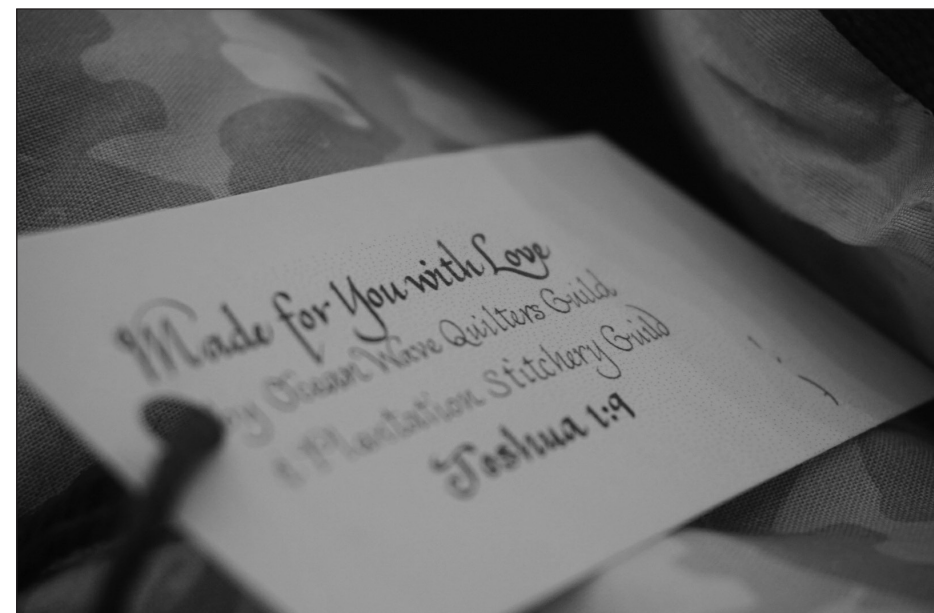 Made for You with Love
by Ocean Wave Quilters Guild
& Plantation Stitchery Guild
Joshua 1:9